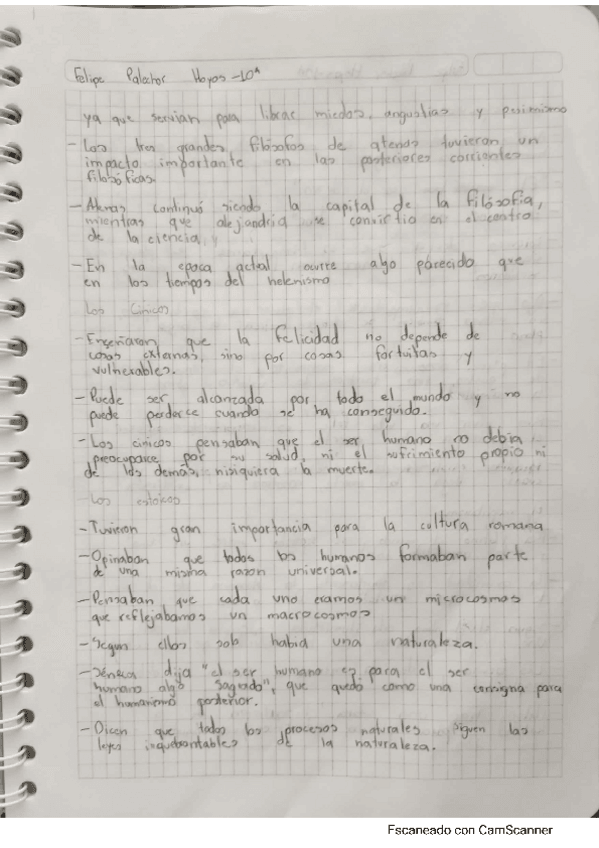 Felipe Palechor Hoyos -10ᴬ
ya que servian para librar miedos, angustias y pesimismo
- Los tres grandes filósofos de atenas tuvieron un
impacto importante en las posteriores corrientes
filosóficas.
- Atenas continuó siendo la capital de la filosofia,
mientras que alejandria se convirtio en el centro
de la ciencia,
- En la epoca actal ocurre algo parecido que
en los tiempos del helenismo
Los Cinicos
- Enseñaron que la felicidad no depende de
cosas externas, sino por cosas fortuitas y
vulnerables.
- Puede ser alcanzada por todo el mundo y no
puede perderce cuando se ha conseguido.
- Los cinicos pensaban que el ser humano no debia
preocuparce por su salud, ni el sufrimiento propio ni
de los demás, nisiquiera la muerte.
Los estoicos
- Tuvieron gran importancia para la cultura romana
- Opinaban que todos los humanos formaban parte
de una misma razon universal.
- Pensaban que cada uno eramos un microcosmos
que reflejabamos un macrocosmos
- Segun ellos solo habia una naturaleza.
- Séneca dija "el ser humano es para el ser
humano algo sagrado", que quedó como una consigna para
el humanismo posterior.
- Dicen que todos los procesos naturales siguen las
leyes inquebrantables de la naturaleza.
Escaneado con CamScanner